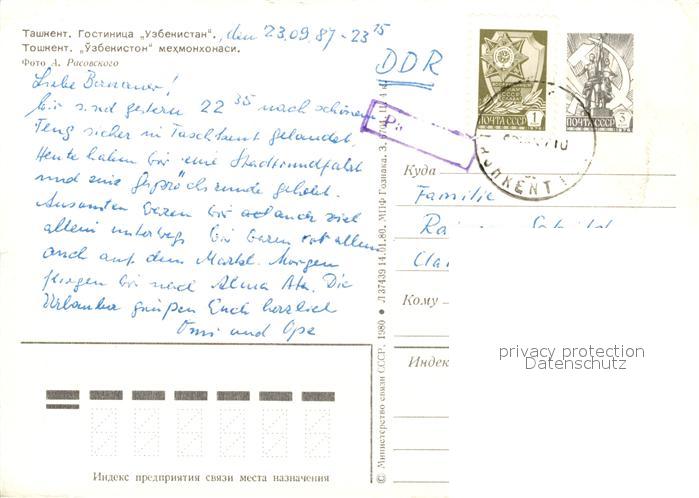 Ташкент. Гостиница „Узбекистан".
Тошкент. „Ўзбекистон" меҳмонхонаси.
Фото А. Расовского
, den 23.09.87 - 23 15
DDR
Liebe
Wir sind gestern 22 35 nach schönem
Flug sicher in Taschkent gelandet.
Heute haben wir eine Stadtrundfahrt
und eine Gesprächsrunde gehabt.
Ansonsten waren wir viel
allein unterwegs wir waren allein
auch auf dem Markt. Morgen
fliegen wir nach Alma Ata. Die
Urlauber grüßen Euch herzlich
Omi und Opa
ПОЧТА СССР 1
ПОЧТА СССР 3
1976
Куда
Familie
Кому
Индекс
© Министерство связи СССР. 1980 ● Л 37439 14.01.80. МПФ Гознака. З.
Индекс предприятия связи места назначения
privacy protection
Datenschutz